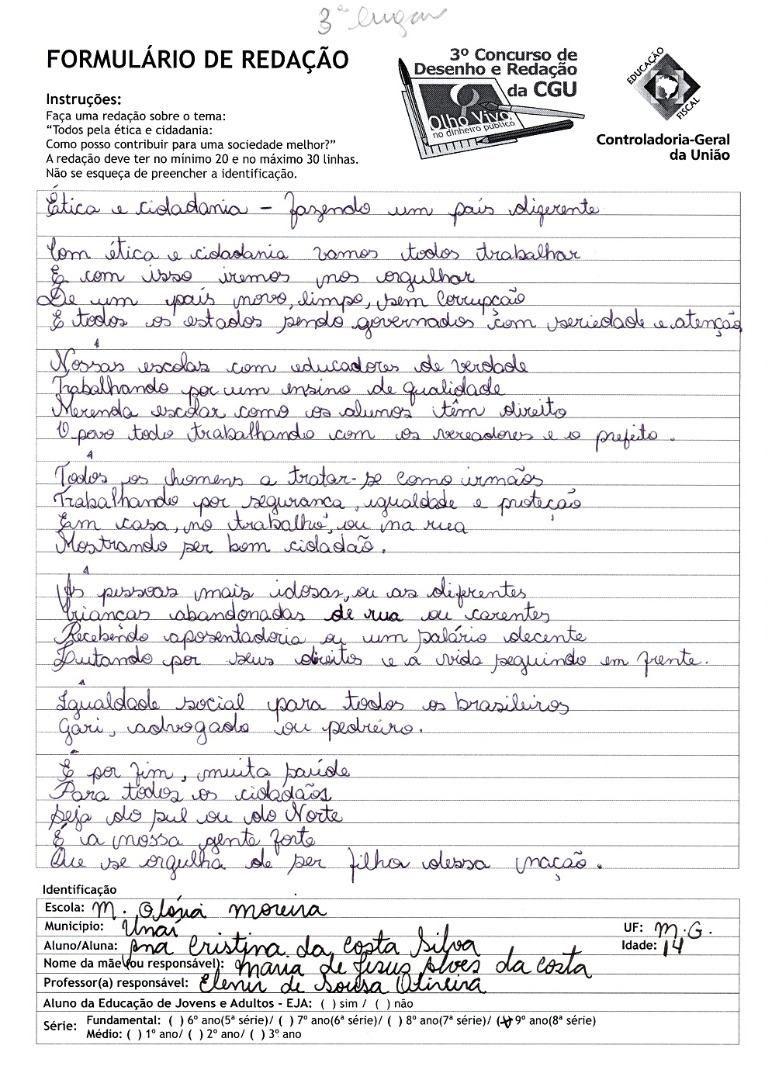 3º lugar
FORMULÁRIO DE REDAÇÃO
3º Concurso de
Desenho e Redação
da CGU
Olho Vivo
no dinheiro público
EDUCAÇÃO
FISCAL
Controladoria-Geral
da União
Instruções:
Faça uma redação sobre o tema:
“Todos pela ética e cidadania:
Como posso contribuir para uma sociedade melhor?”
A redação deve ter no mínimo 20 e no máximo 30 linhas.
Não se esqueça de preencher a identificação.
Ética e cidadania - fazendo um país digerente
Com ética e cidadania vamos todos trabalhar
E com isso iremos nos orgulhar
De um país novo, limpo, sem Corrupção
E todos os estados sendo governados com seriedade e atenção
Nossas escolas com educadores de verdade
Trabalhando por um ensino de qualidade
Merenda escolar como os alunos têm direito
O povo todo trabalhando com os vereadores e o prefeito.
Todos os homens a tratar-se como irmãos
Trabalhando por segurança, igualdade e proteção
Em casa, no trabalho, ou na rua
Mostrando ser bom cidadão.
As pessoas mais idosas, ou as diferentes
Crianças abandonadas de rua ou carentes
Recebendo aposentadoria ou um salário decente
Lutando por seus direitos e a vida seguindo em frente.
Igualdade social para todos os brasileiros
Gari, advogado ou pedreiro.
E por fim, muita saúde
Para todos os cidadãos
Seja do sul ou do Norte
É a nossa gente forte
Que se orgulha de ser filha dessa nação.
Identificação
Escola: M. Glória Moreira
Município: Unaí UF: M.G.
Aluno/Aluna: Ana Cristina da Costa Silva Idade: 14
Nome da mãe(ou responsável): Maria de Jesus Alves da Costa
Professor(a) responsável: Elenir de Sousa Oliveira
Aluno da Educação de Jovens e Adultos - EJA: ( ) sim / ( ) não
Série: Fundamental: ( ) 6º ano(5ª série)/ ( ) 7º ano(6ª série)/ ( ) 8º ano(7ª série)/ (x) 9º ano(8ª série)
Médio: ( ) 1º ano/ ( ) 2º ano/ ( ) 3º ano